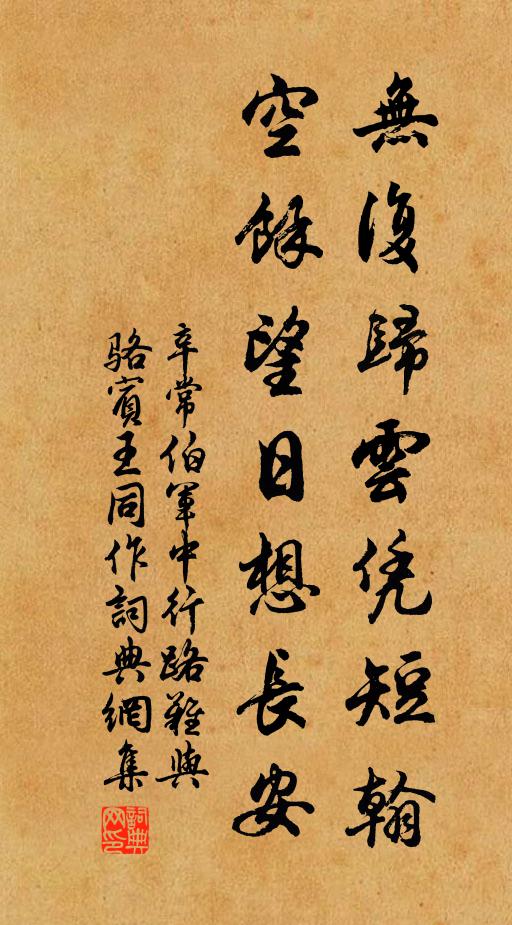 無復歸雲凭短翰
空餘望日想長安
辛常伯軍中行路難與
駱賓王同作詞典網集
詞典网印